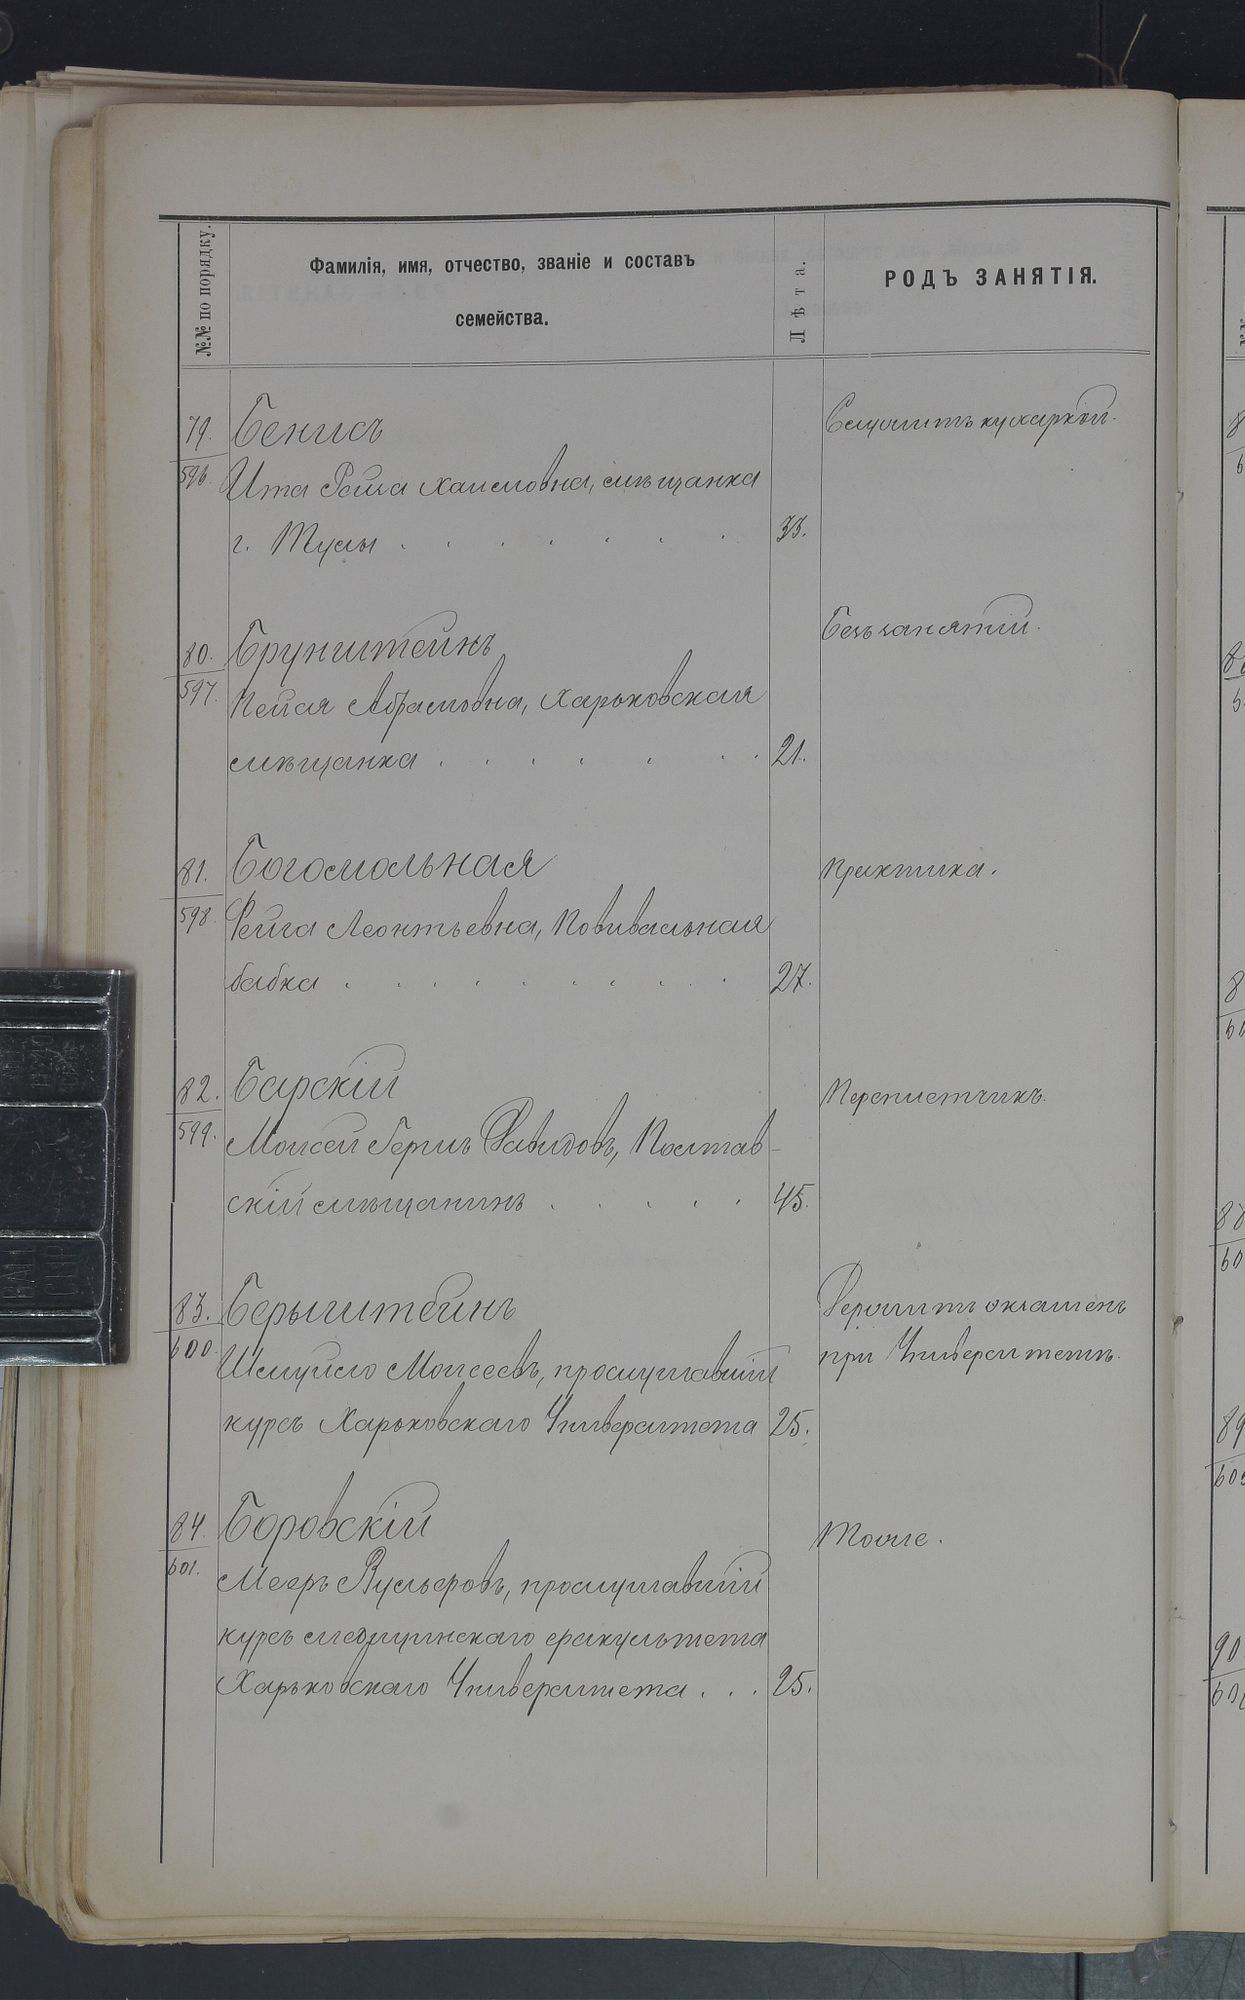 №№ по порядку.
Фамилія, имя, отчество, званіе и составъ
семейства.
Лѣта.
РОДЪ ЗАНЯТІЯ.
79. Бенисъ
Служитъ кухаркой.
596. Ита Рейза Хаимовна, мѣщанка
г. Тулы . . . . . . . 33.
80. Брунштейнъ
Безъ занятій.
597. Пейся Абрамовна, Харьковская
мѣщанка . . . . . . . 21.
81. Богомольная
Практика.
598. Фейга Леонтьевна, Повивальная
бабка . . . . . . . . . 27.
82. Барскій
Переписчикъ.
599. Моисей Герш Давидовъ, Полтав-
скій мѣщанинъ . . . . . 45.
83. Бернштейнъ
Держитъ экзаменъ
600. Шмуйло Моисеевъ, прослушавшій
при Университетѣ.
курсъ Харьковскаго Университета 25.
84. Боровскій
Тоже.
601. Мееръ Вульфовъ, прослушавшій
курсъ медицинскаго факультета
Харьковскаго Университета . . . 25.